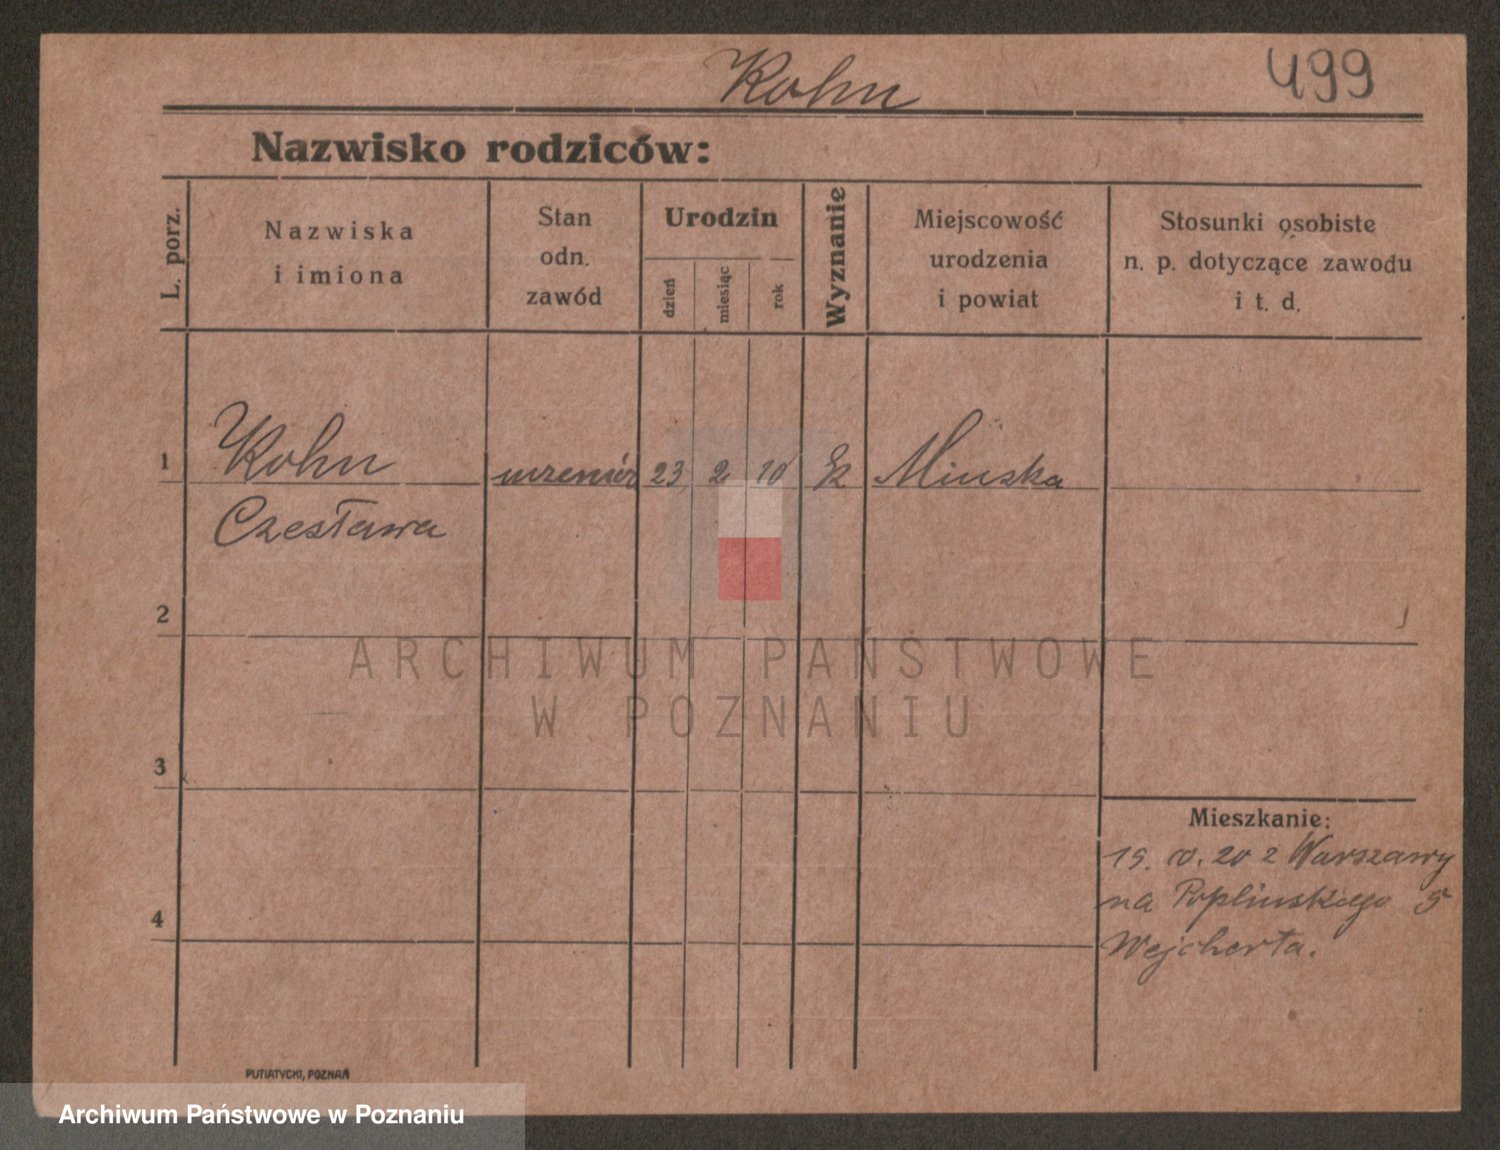 Kohn
499
Nazwisko rodziców:
L. porz.
Nazwiska
i imiona
Stan
odn.
zawód
Urodzin
dzień
miesiąc
rok
Wyznanie
Miejscowość
urodzenia
i powiat
Stosunki osobiste
n. p. dotyczące zawodu
i t. d.
1
Kohn
23 2 10
Minska
Czesława
2
ARCHIWUM PAŃSTWOWE
W POZNANIU
3
Mieszkanie:
20 z Warszawy
na Poplinskiego 5
Wejcherta.
4
PUTIATYCKI, POZNAŃ
Archiwum Państwowe w Poznaniu